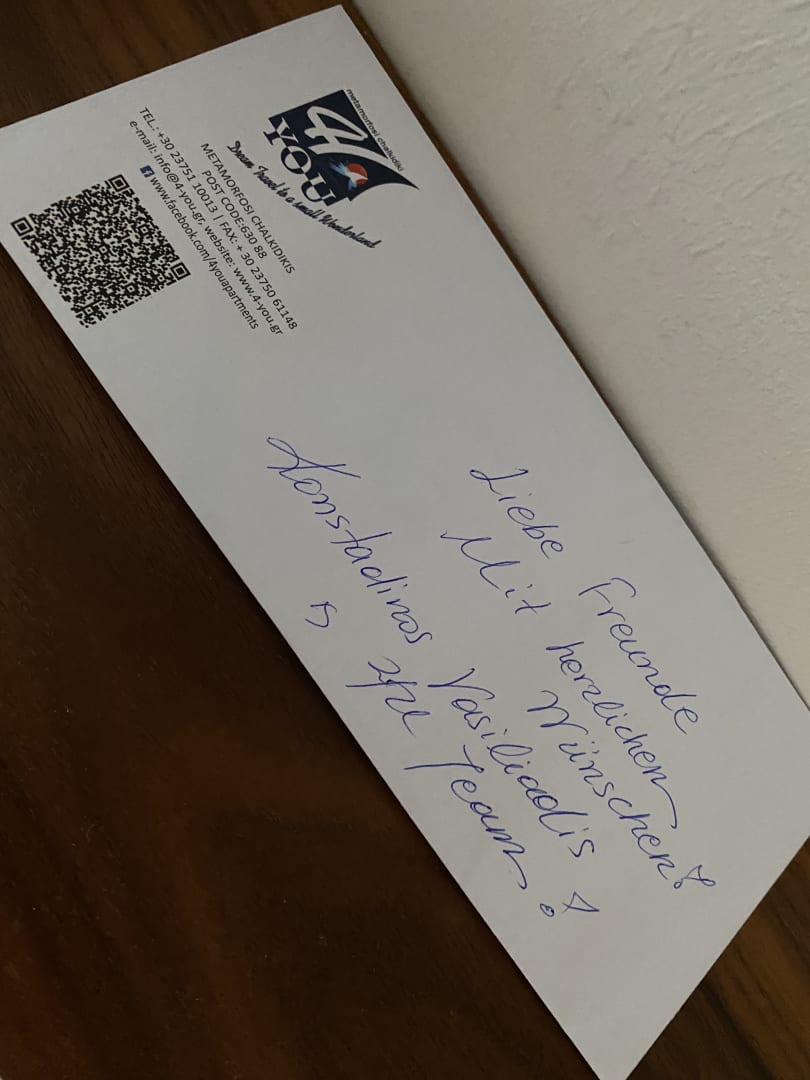 metamorfosi chalkidiki
4
YOU
Dream Travel to a small Wonderland
METAMORFOSI CHALKIDIKIS
POST CODE:630 88
TEL.: +30 23751 10013 | FAX: + 30 23750 61148
e-mail: info@4-you.gr, website: www.4-you.gr
www.facebook.com/4youapartments
Liebe Freunde
Mit herzlichen
Wünschen!
Konstadinos Vasiliadis &
Team!